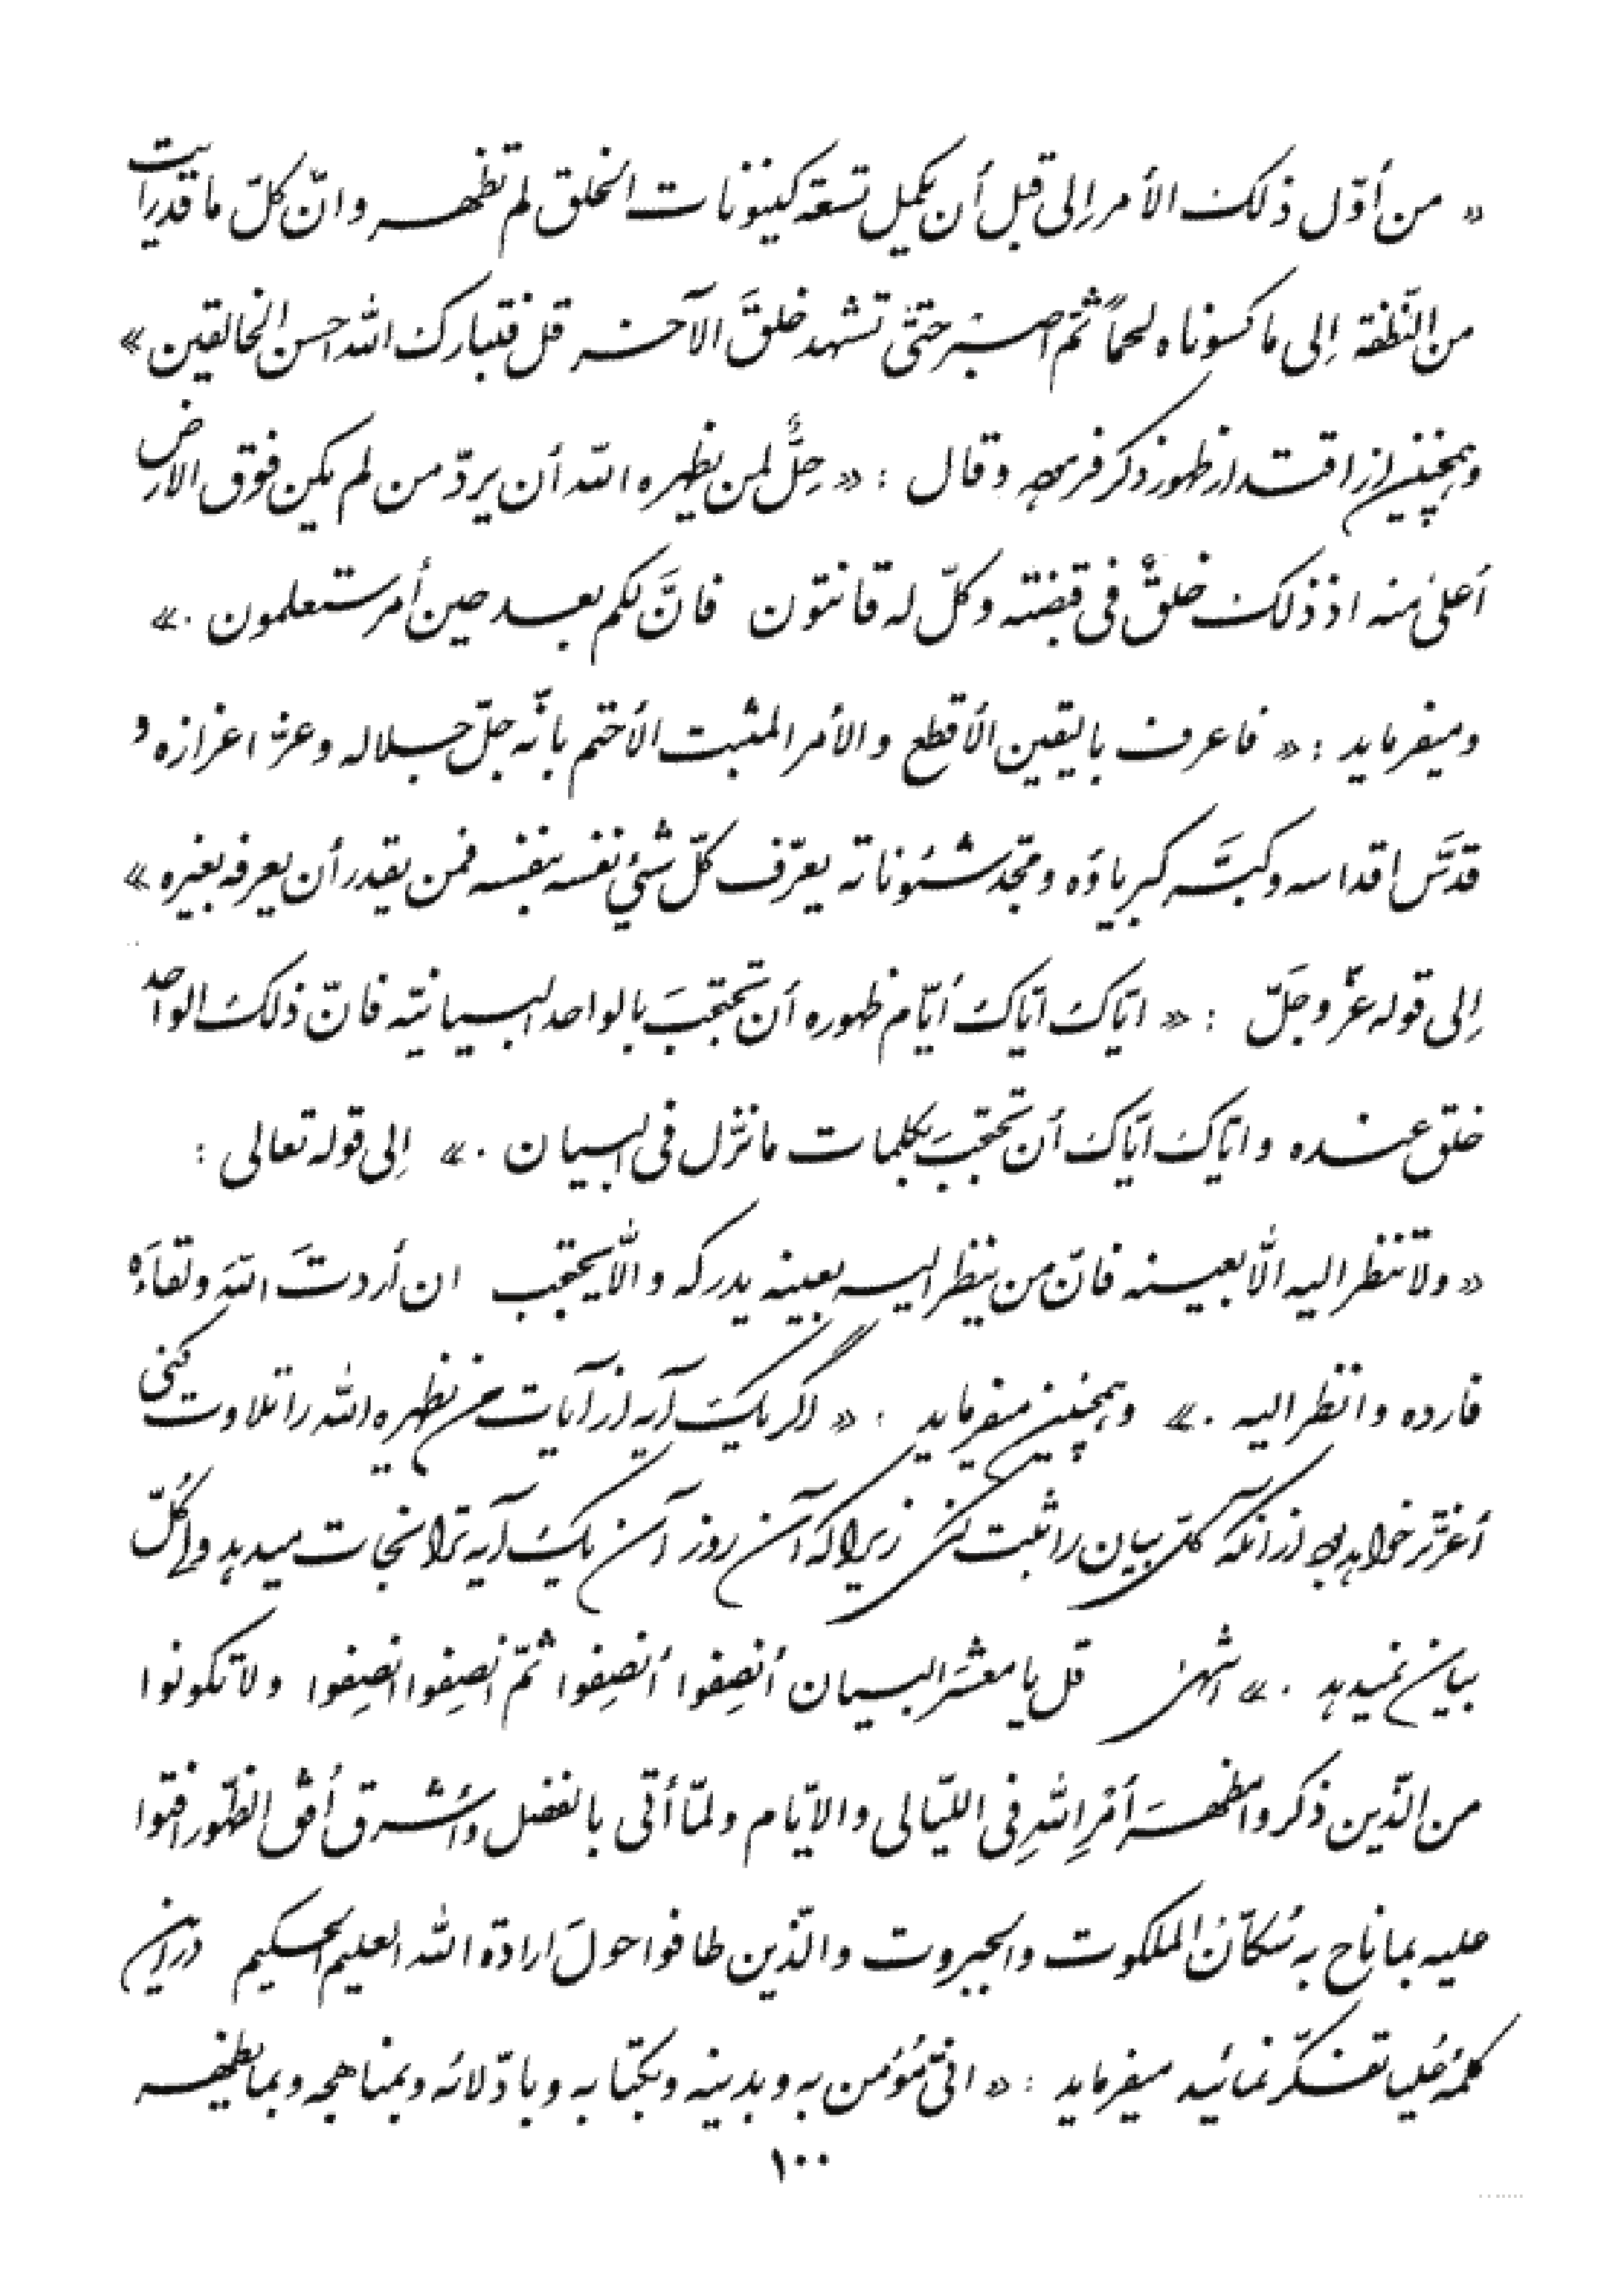 « من أوّل ذلک الأمر إلی قبل أن یکمل تسعة کینونات الخلق لم تظهر و انّ کلّ ما قد رأیت
من النّطفة إلی ما کسوناه لحماً ثمّ اصبر حتّی تشهد خلقَ الآخر قل فتبارک الله احسن الخالقین »
و همچنین از اقتدار ظهور ذکر فرموده و قال : « حِلٌّ لمن یظهره الله أن یردّ من لم یکن فوق الارض
أعلیٰ منه اذ ذلک خلقٌ فی قبضته و کلّ له قانتون فانَّ لکم بعد حین أمر ستعلمون . »
و میفرماید : « فاعرف بالیقین الأقطع و الأمر المثبت الأختم بانّه جلّ جلاله و عزّ اعزازه و
قدَّس اقداسه و کبَّر کبریاؤه و مجّد شئوناته یعرّف کلّ شیٔ نفسه بنفسه فمن یقدر أن یعرفه بغیره »
إلی قوله عزّ وجَلّ : « ایّاک ایّاک أیّام ظهوره أن تحتجبَ بالواحد البیانیّه فانّ ذلک الواحد
خلق عنده و ایّاک ایّاک أن تحتجبَ بکلمات ما نزّل فی البیان . » إلی قوله تعالی :
« و لا تنظر الیه الّا بعینه فانّ من ینظر الیه بعینه یدرکه و الّا یحتجب ان أردتَ اللهَ و لقاءَه
فارده و انظر الیه . » و همچنین میفرماید : « اگر یک آیه از آیات من یظهره الله را تلاوت کنی
أعزّتر خواهد بود از آنکه کلّ بیان را ثبت کنی زیرا که آن روز آن یک آیه ترا نجات میدهد و لی کُلّ
بیان نمیدهد . » انتهی قل یا معشرَ البیان أنصِفوا أنصِفوا ثمّ انصِفوا انصِفوا و لا تکونوا
من الّذین ذکروا مظهرَ أمْرِ اللهِ فی اللیّالی و الایّام و لمّا أتی بالفضل و أشرق أُفق الظّهور افتوا
علیه بما ناح به سُکّانُ الملکوت و الجبروت و الّذین طافوا حولَ ارادة الله العلیم الحکیم در این
کلمهٔ عُلیا تفکّر نمائید میفرماید : « انّی مُؤمن به و بدینه و بکتابه و بادّلائه و بمناهجه و بما یظهر
۱۰۰